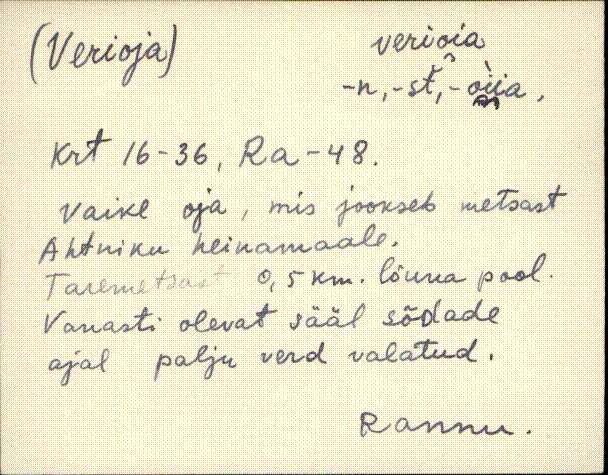 (Verioja)
verioia
-n, -st, -oiia,
Krt 16-36, Ra-48.
Vaike oja, mis jookseb metsast
Ahtniku heinamaale.
Taremetsast 0,5 km. lõuna pool.
Vanasti olevat sääl sõdade
ajal palju verd valatud.
Rannu.